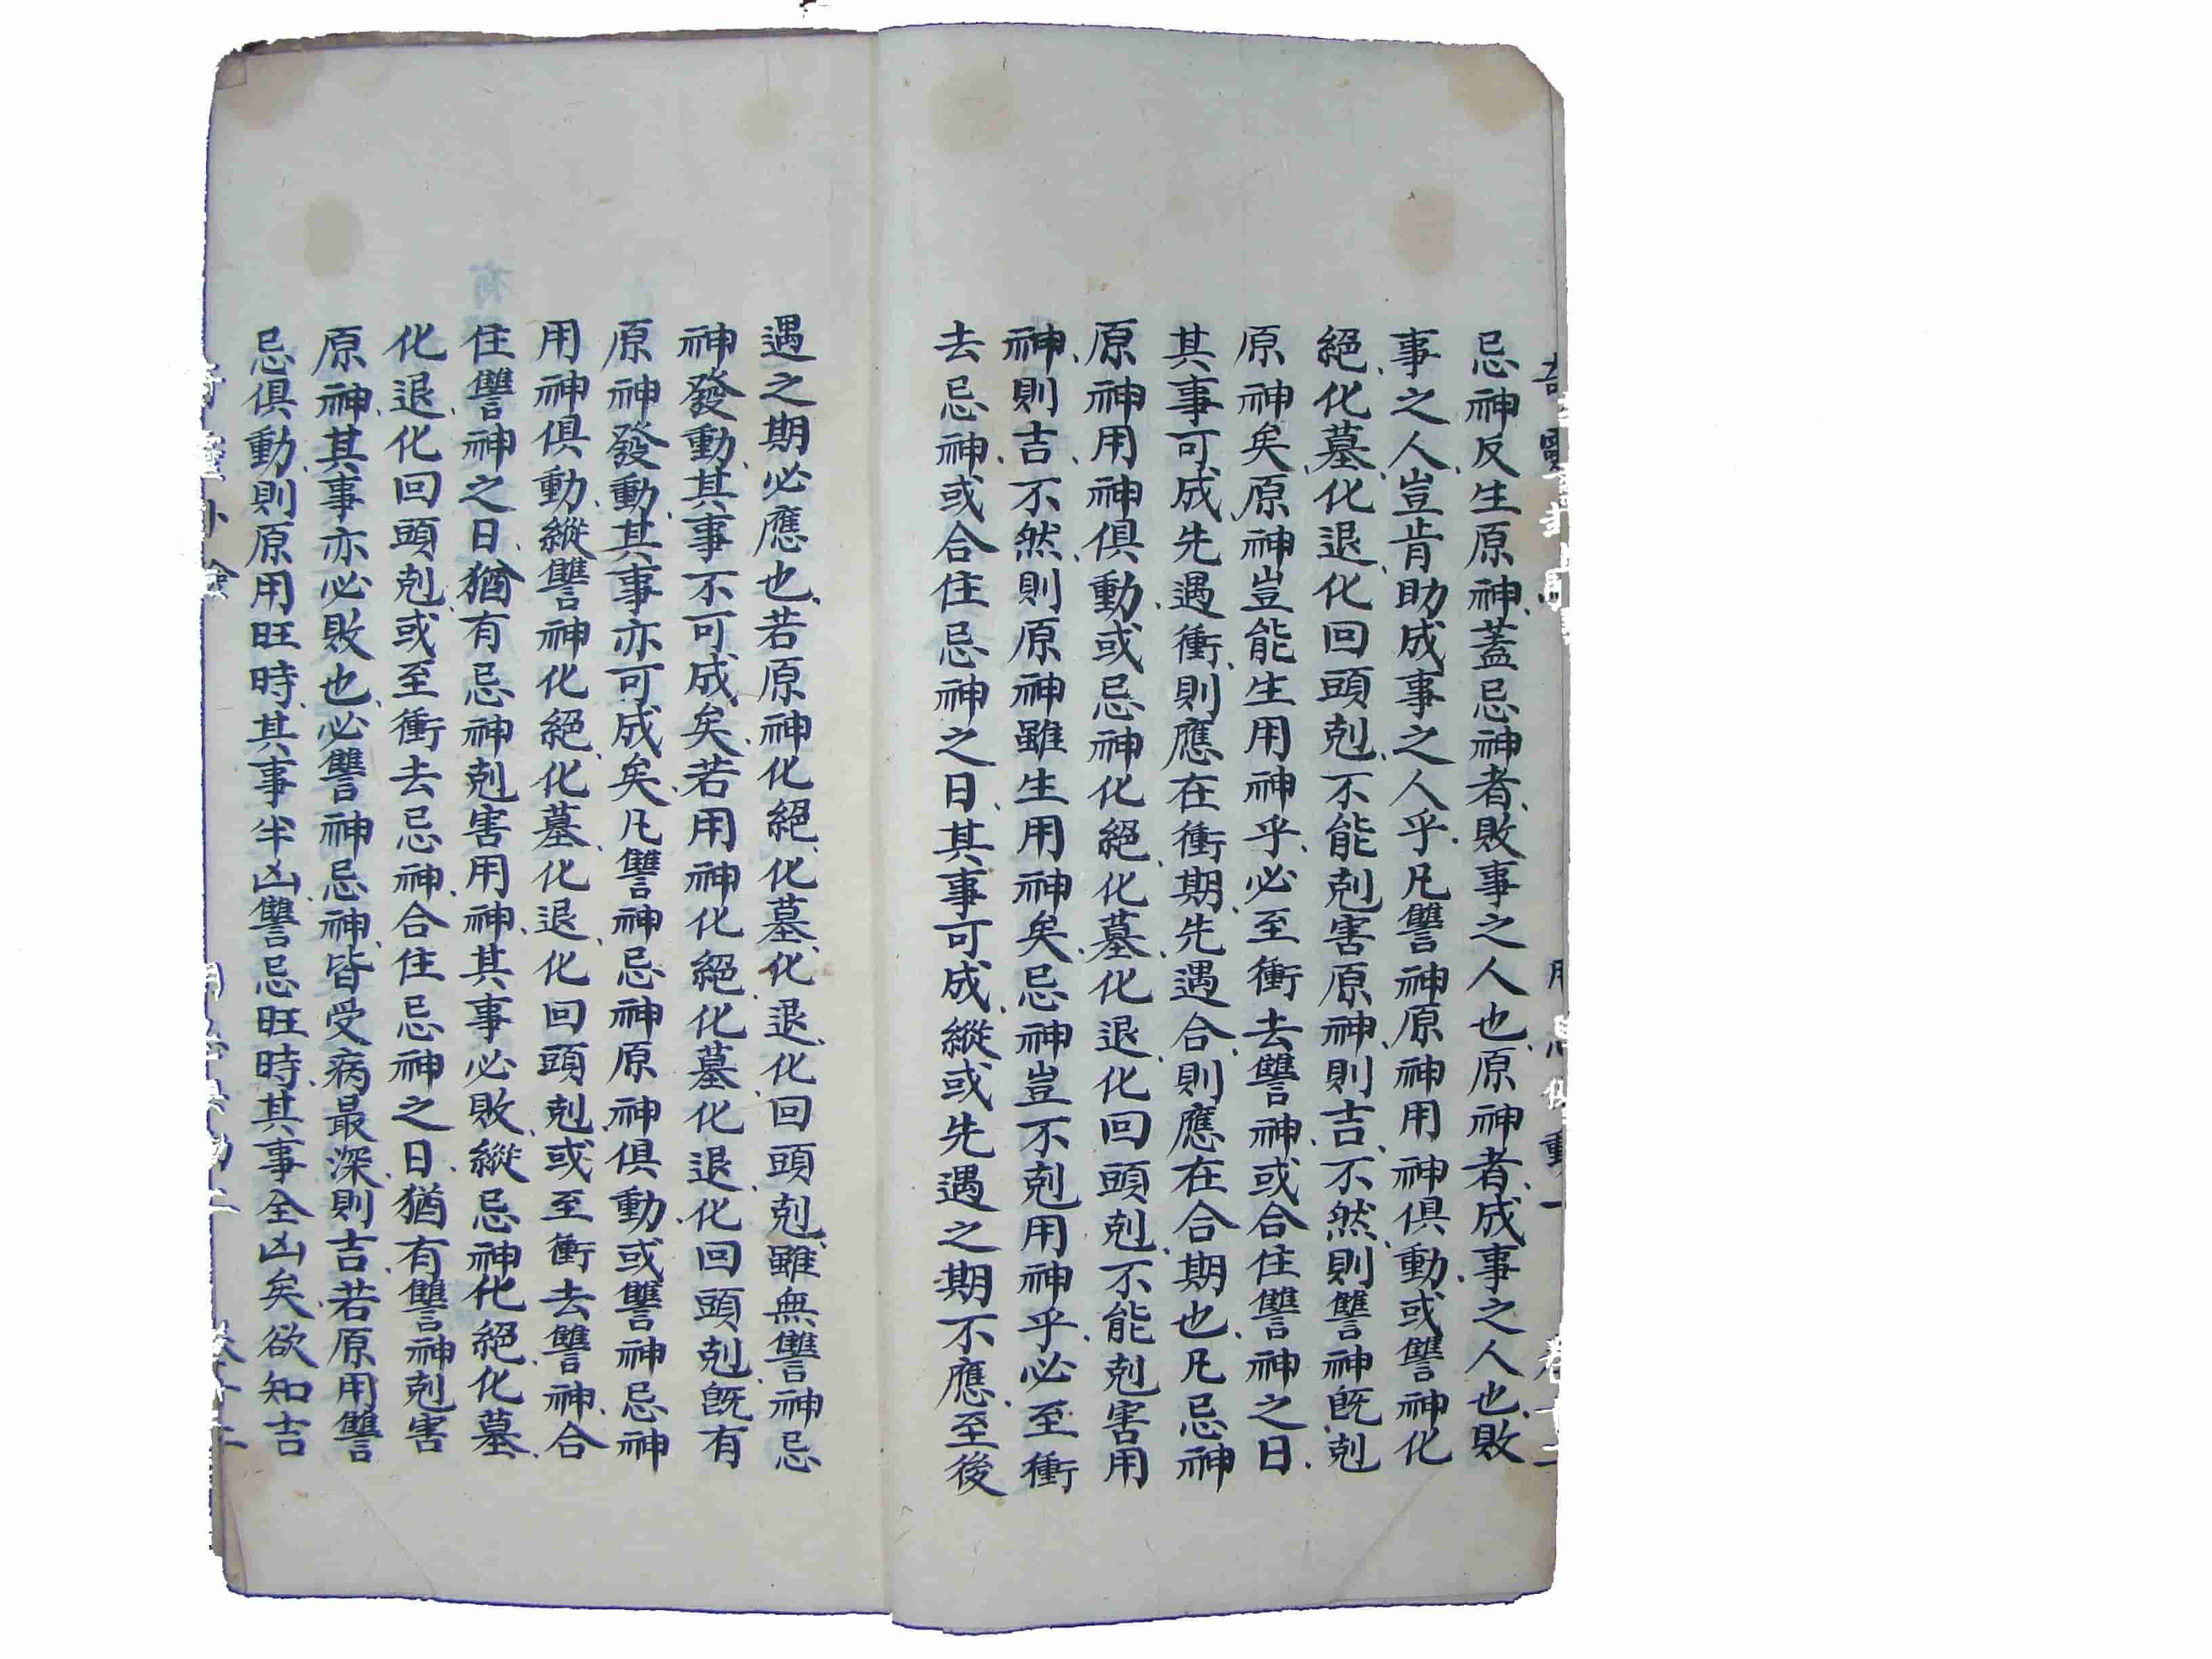 忌神、反生原神、蓋忌神者、敗事之人也、原神者、成事之人也、敗
事之人、豈肯助成事之人乎、凡讐神原神用神俱動、或讐神化
絕、化墓、化退、化回頭剋、不能剋害原神、則吉、不然、則讐神既剋
原神矣、原神豈能生用神乎、必至衝去讐神、或合住讐神之日、
其事可成、先遇衝、則應在衝期、先遇合、則應在合期也、凡忌神
原神用神俱動、或忌神化絕、化墓、化退、化回頭剋、不能剋害用
神、則吉、不然、則原神雖生用神矣、忌神豈不剋用神乎、必至衝
去忌神、或合住忌神之日、其事可成、縱或先遇之期不應、至後
遇之期必應也、若原神化絕、化墓、化退、化回頭剋、雖無讐神忌
神發動、其事不可成矣、若用神化絕、化墓化退、化回頭剋、既有
原神發動、其事亦可成矣、凡讐神忌神原神俱動、或讐神忌神
用神俱動、縱讐神化絕、化墓、化退、化回頭剋、或至衝去讐神、合
住讐神之日、猶有忌神剋害用神、其事必敗、縱忌神化絕、化墓、
化退、化回頭剋、或至衝去忌神、合住忌神之日、猶有讐神剋害
原神、其事亦必敗也、必讐神忌神、皆受病最深、則吉、若原用讐
忌俱動、則原用旺時、其事半凶、讐忌旺時、其事全凶矣、欲知吉